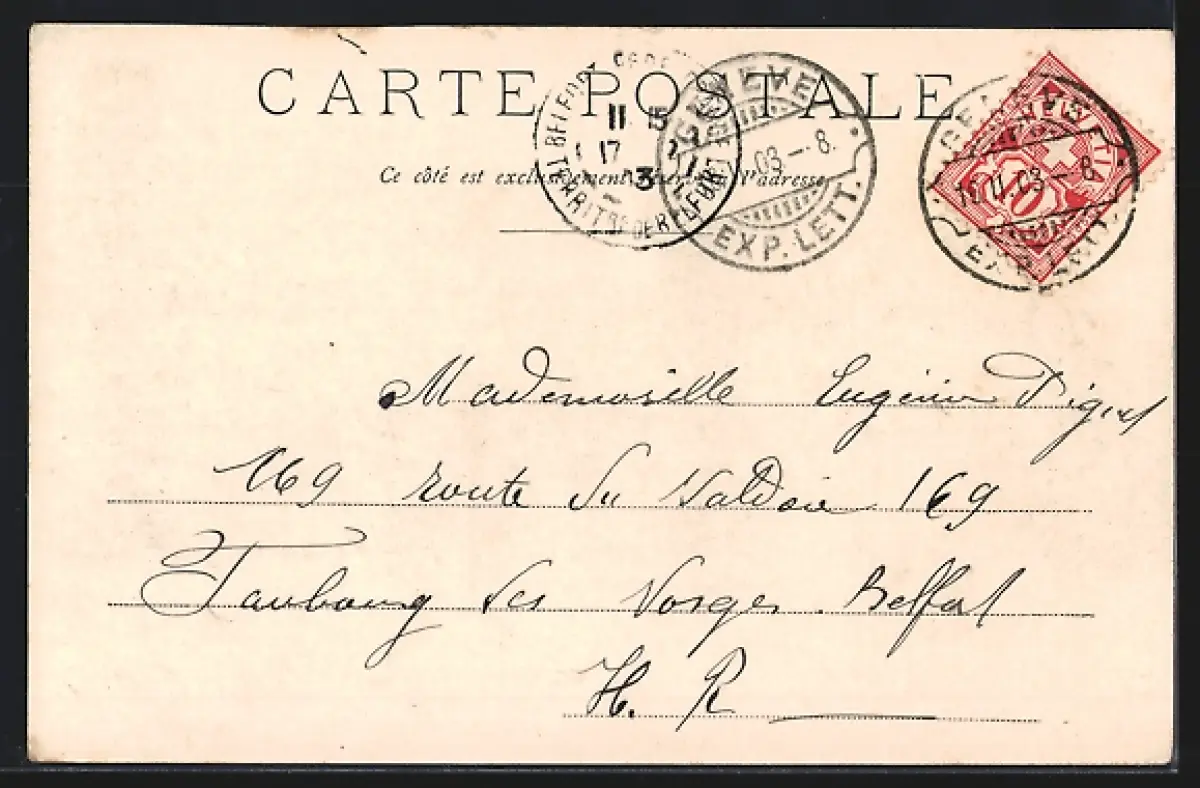 CARTE POSTALE
Ce côté est exclusivement l'adresse
BELFORT
11 15
17
3
TERRIT. DE BELFORT
GENÈVE
03.-8.
EXP. LETT.
HELVETIA
10
GENÈVE
16.II.03-8
EXP. LETT.
Mademoiselle Eugénie
169 route du Valdoie 169
Faubourg des Vosges Belfort
H. R